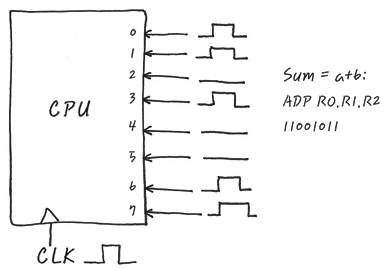 0
1
2
3
4
5
6
7
CPU
CLK
Sum = a+b;
ADD R0,R1,R2
11001011